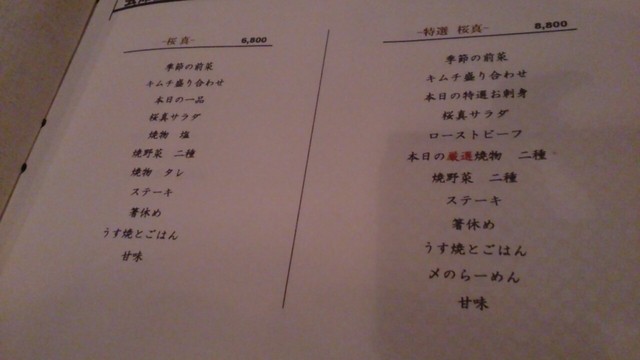 -桜真- 6,800
季節の前菜
キムチ盛り合わせ
本日の一品
桜真サラダ
焼物 塩
焼野菜 二種
焼物 タレ
ステーキ
箸休め
うす焼とごはん
甘味
-特選 桜真- 8,800
季節の前菜
キムチ盛り合わせ
本日の特選お刺身
桜真サラダ
ローストビーフ
本日の厳選焼物 二種
焼野菜 二種
ステーキ
箸休め
うす焼とごはん
〆のらーめん
甘味